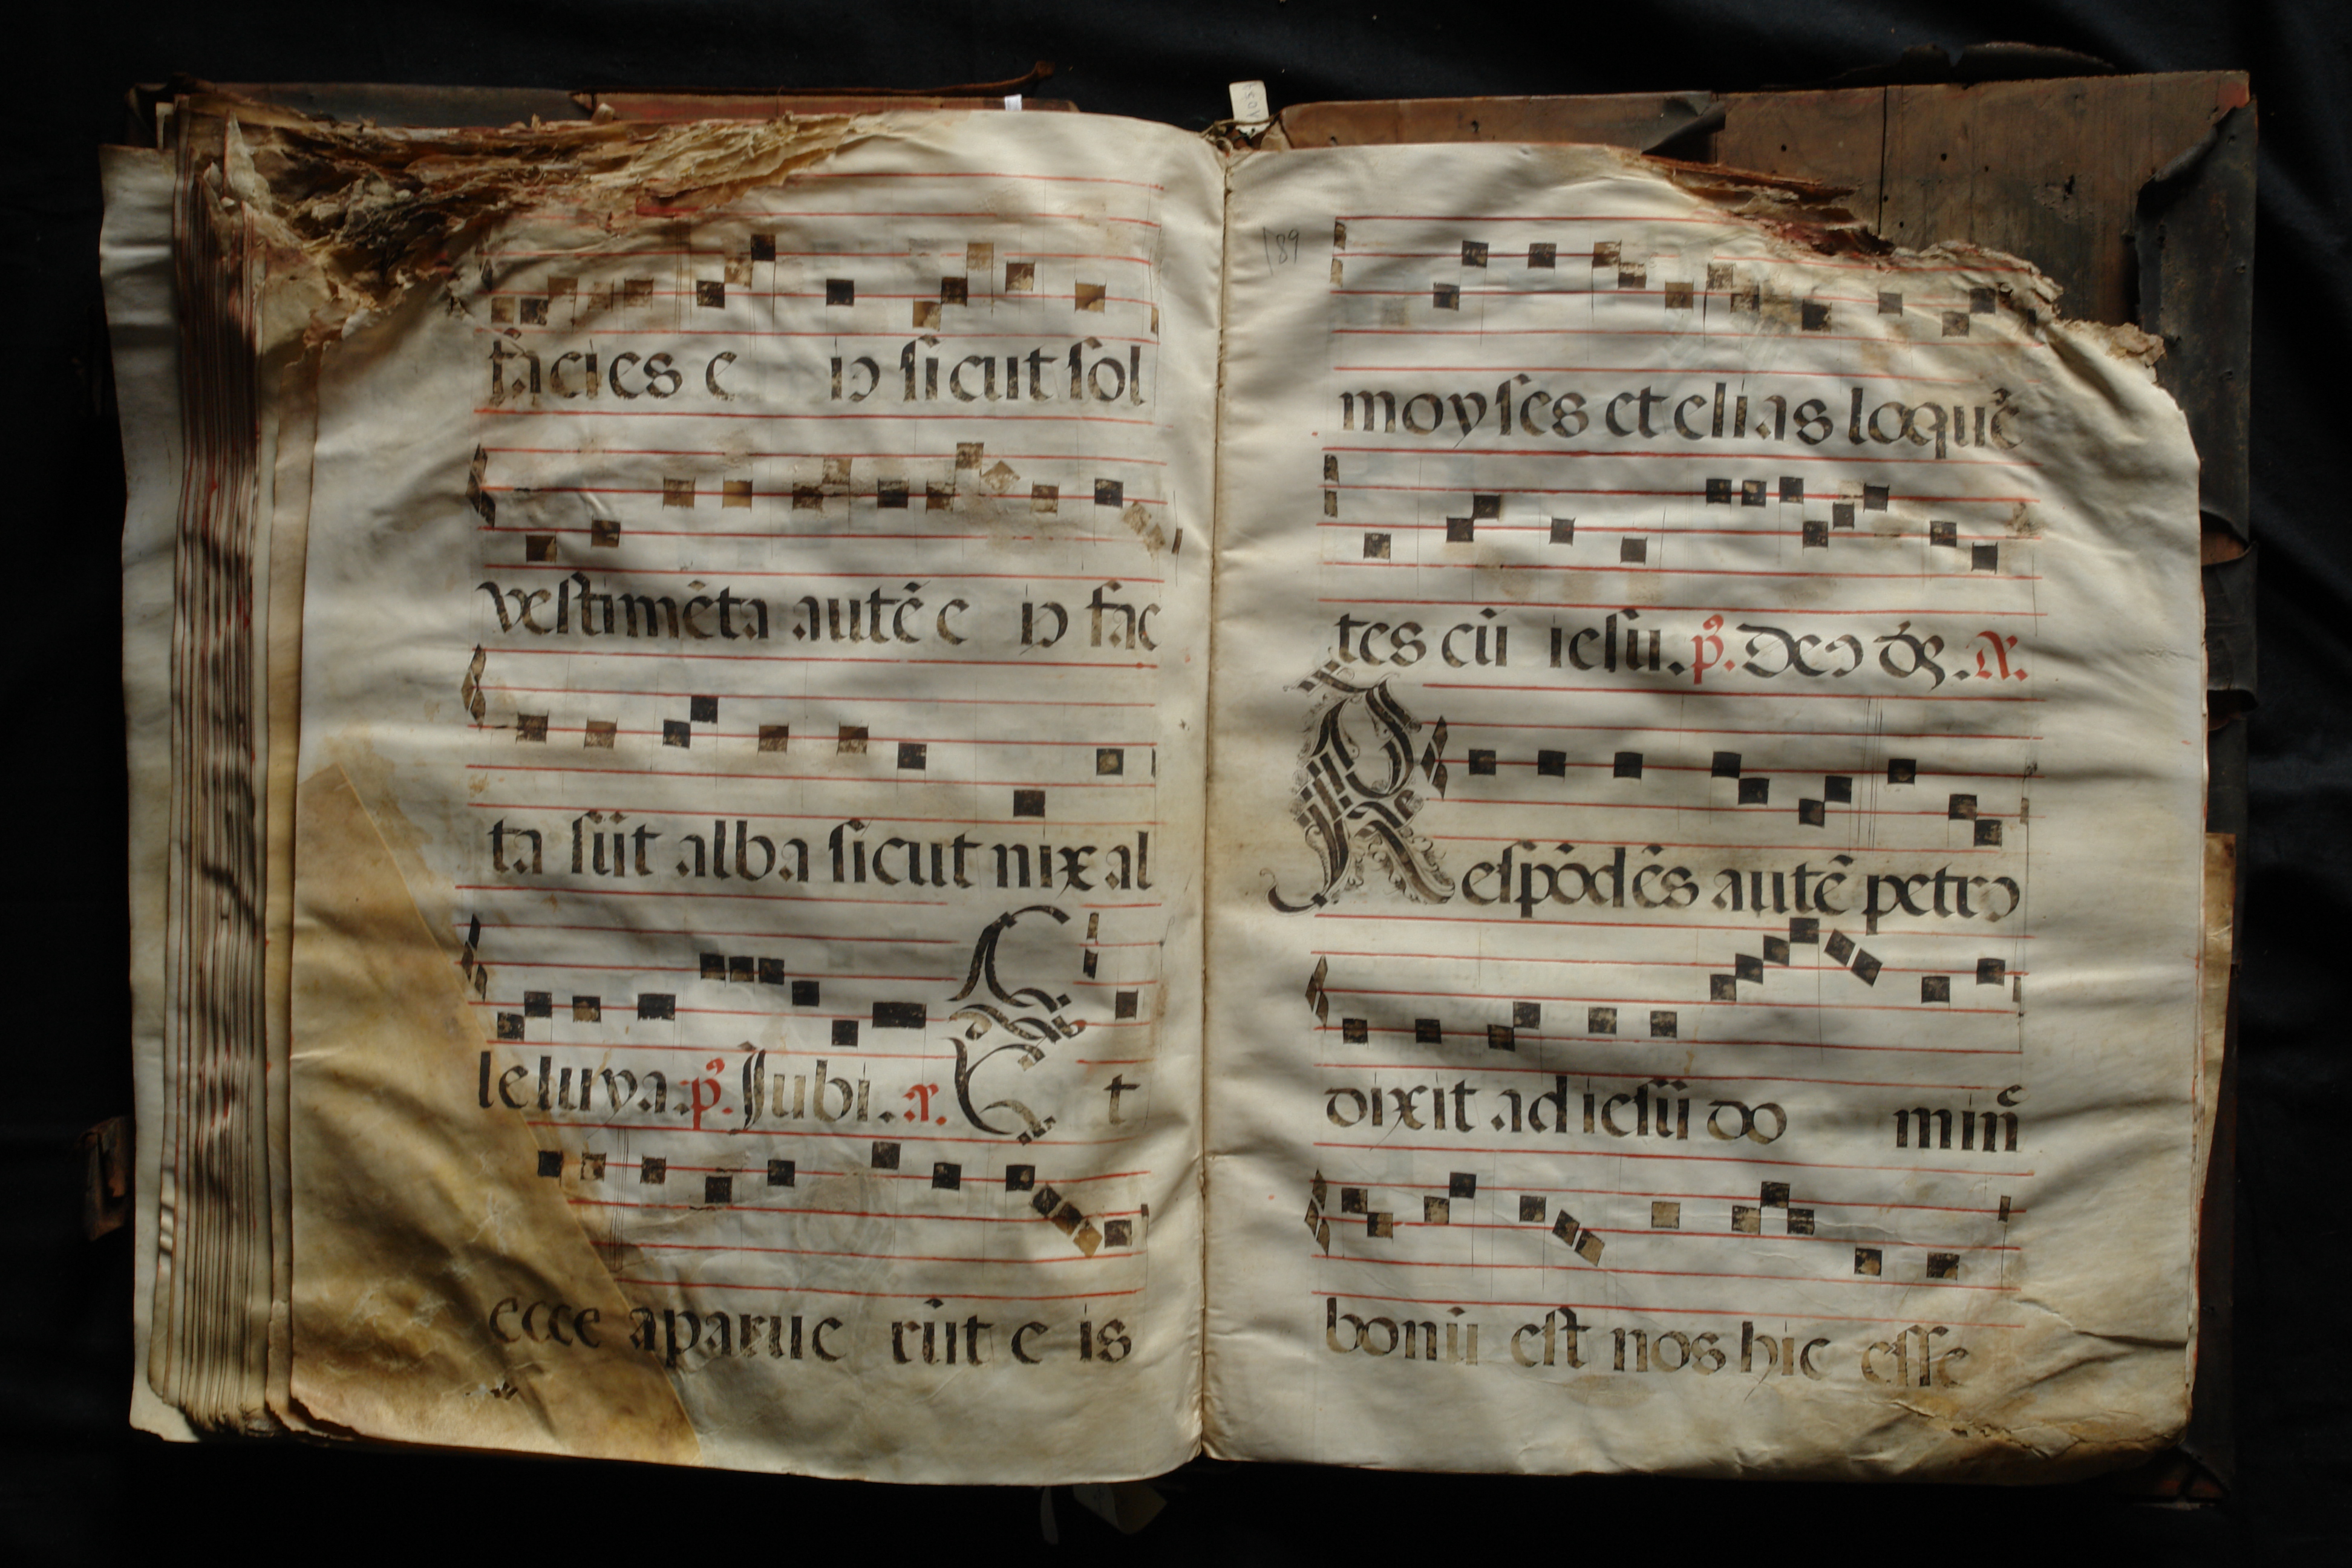 facies e iꝰ sicut sol
vestimẽta autẽ e iꝰ fac
ta sũt alba sicut nix al
leluya. p̃. Jubi. a͂. E t
ecce aparue rũt e is
189
moyses et elias loquẽ
tes cũ iesu. p̃. Deꝰ d̃s. A͂.
Respõdẽs autẽ petrꝰ
dixit ad iesũ do minẽ
bonũ est nos hic esse